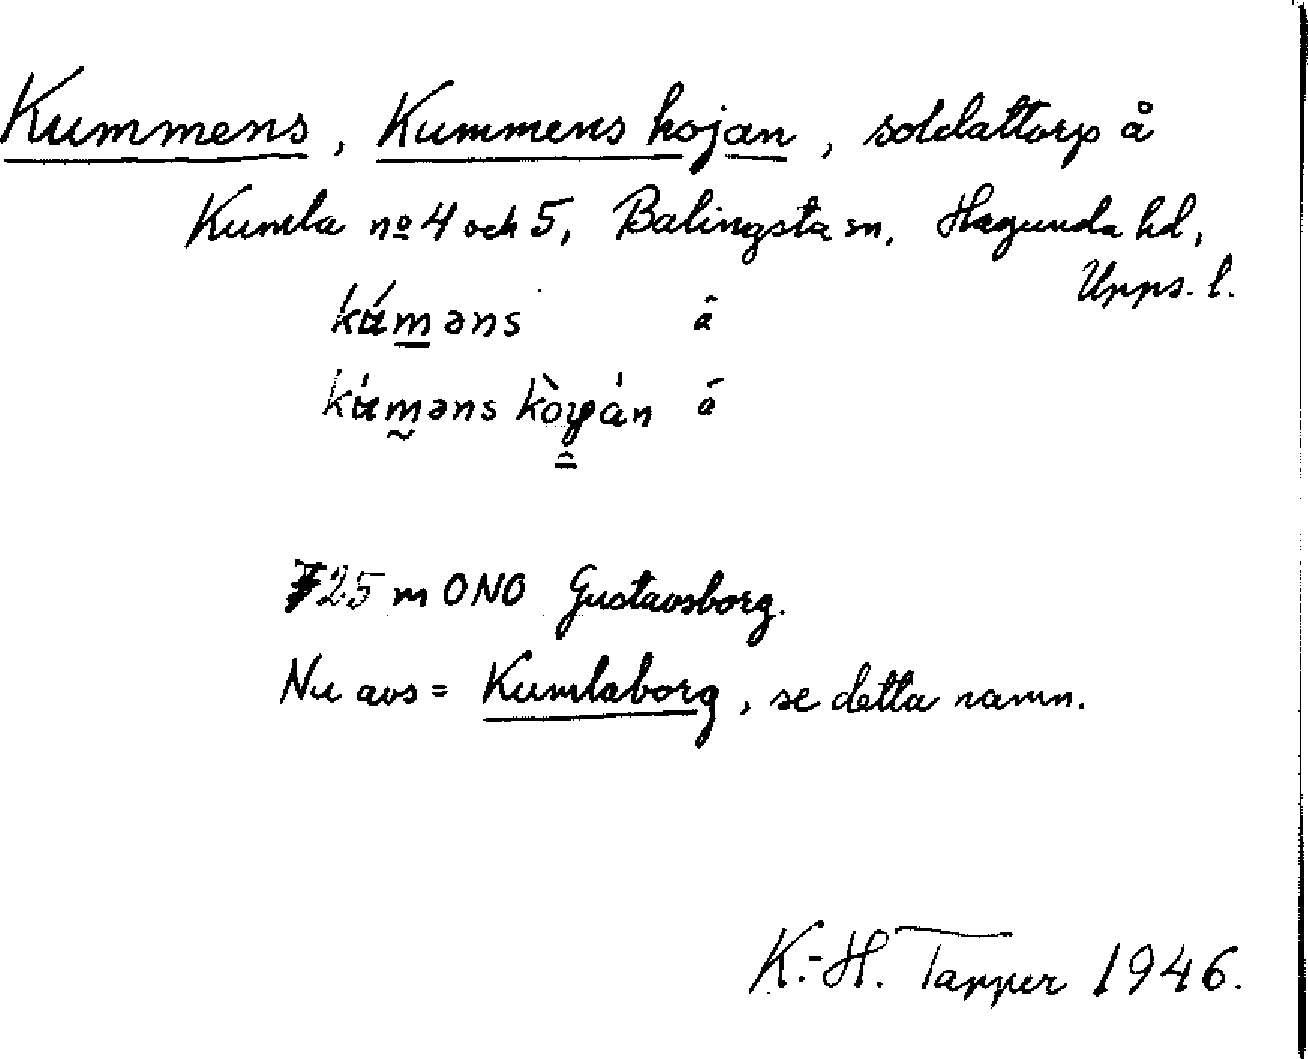 Kummens, Kummens kojan, soldattorp å
Kumla nº 4 och 5, Balingsta sn, Hagunda hd,
Upps. l.
kúməns å
kúməns kòján å
25 m ONO Gustavsborg.
Nu avs = Kumlaborg, se detta namn.
K.-H. Tapper 1946.